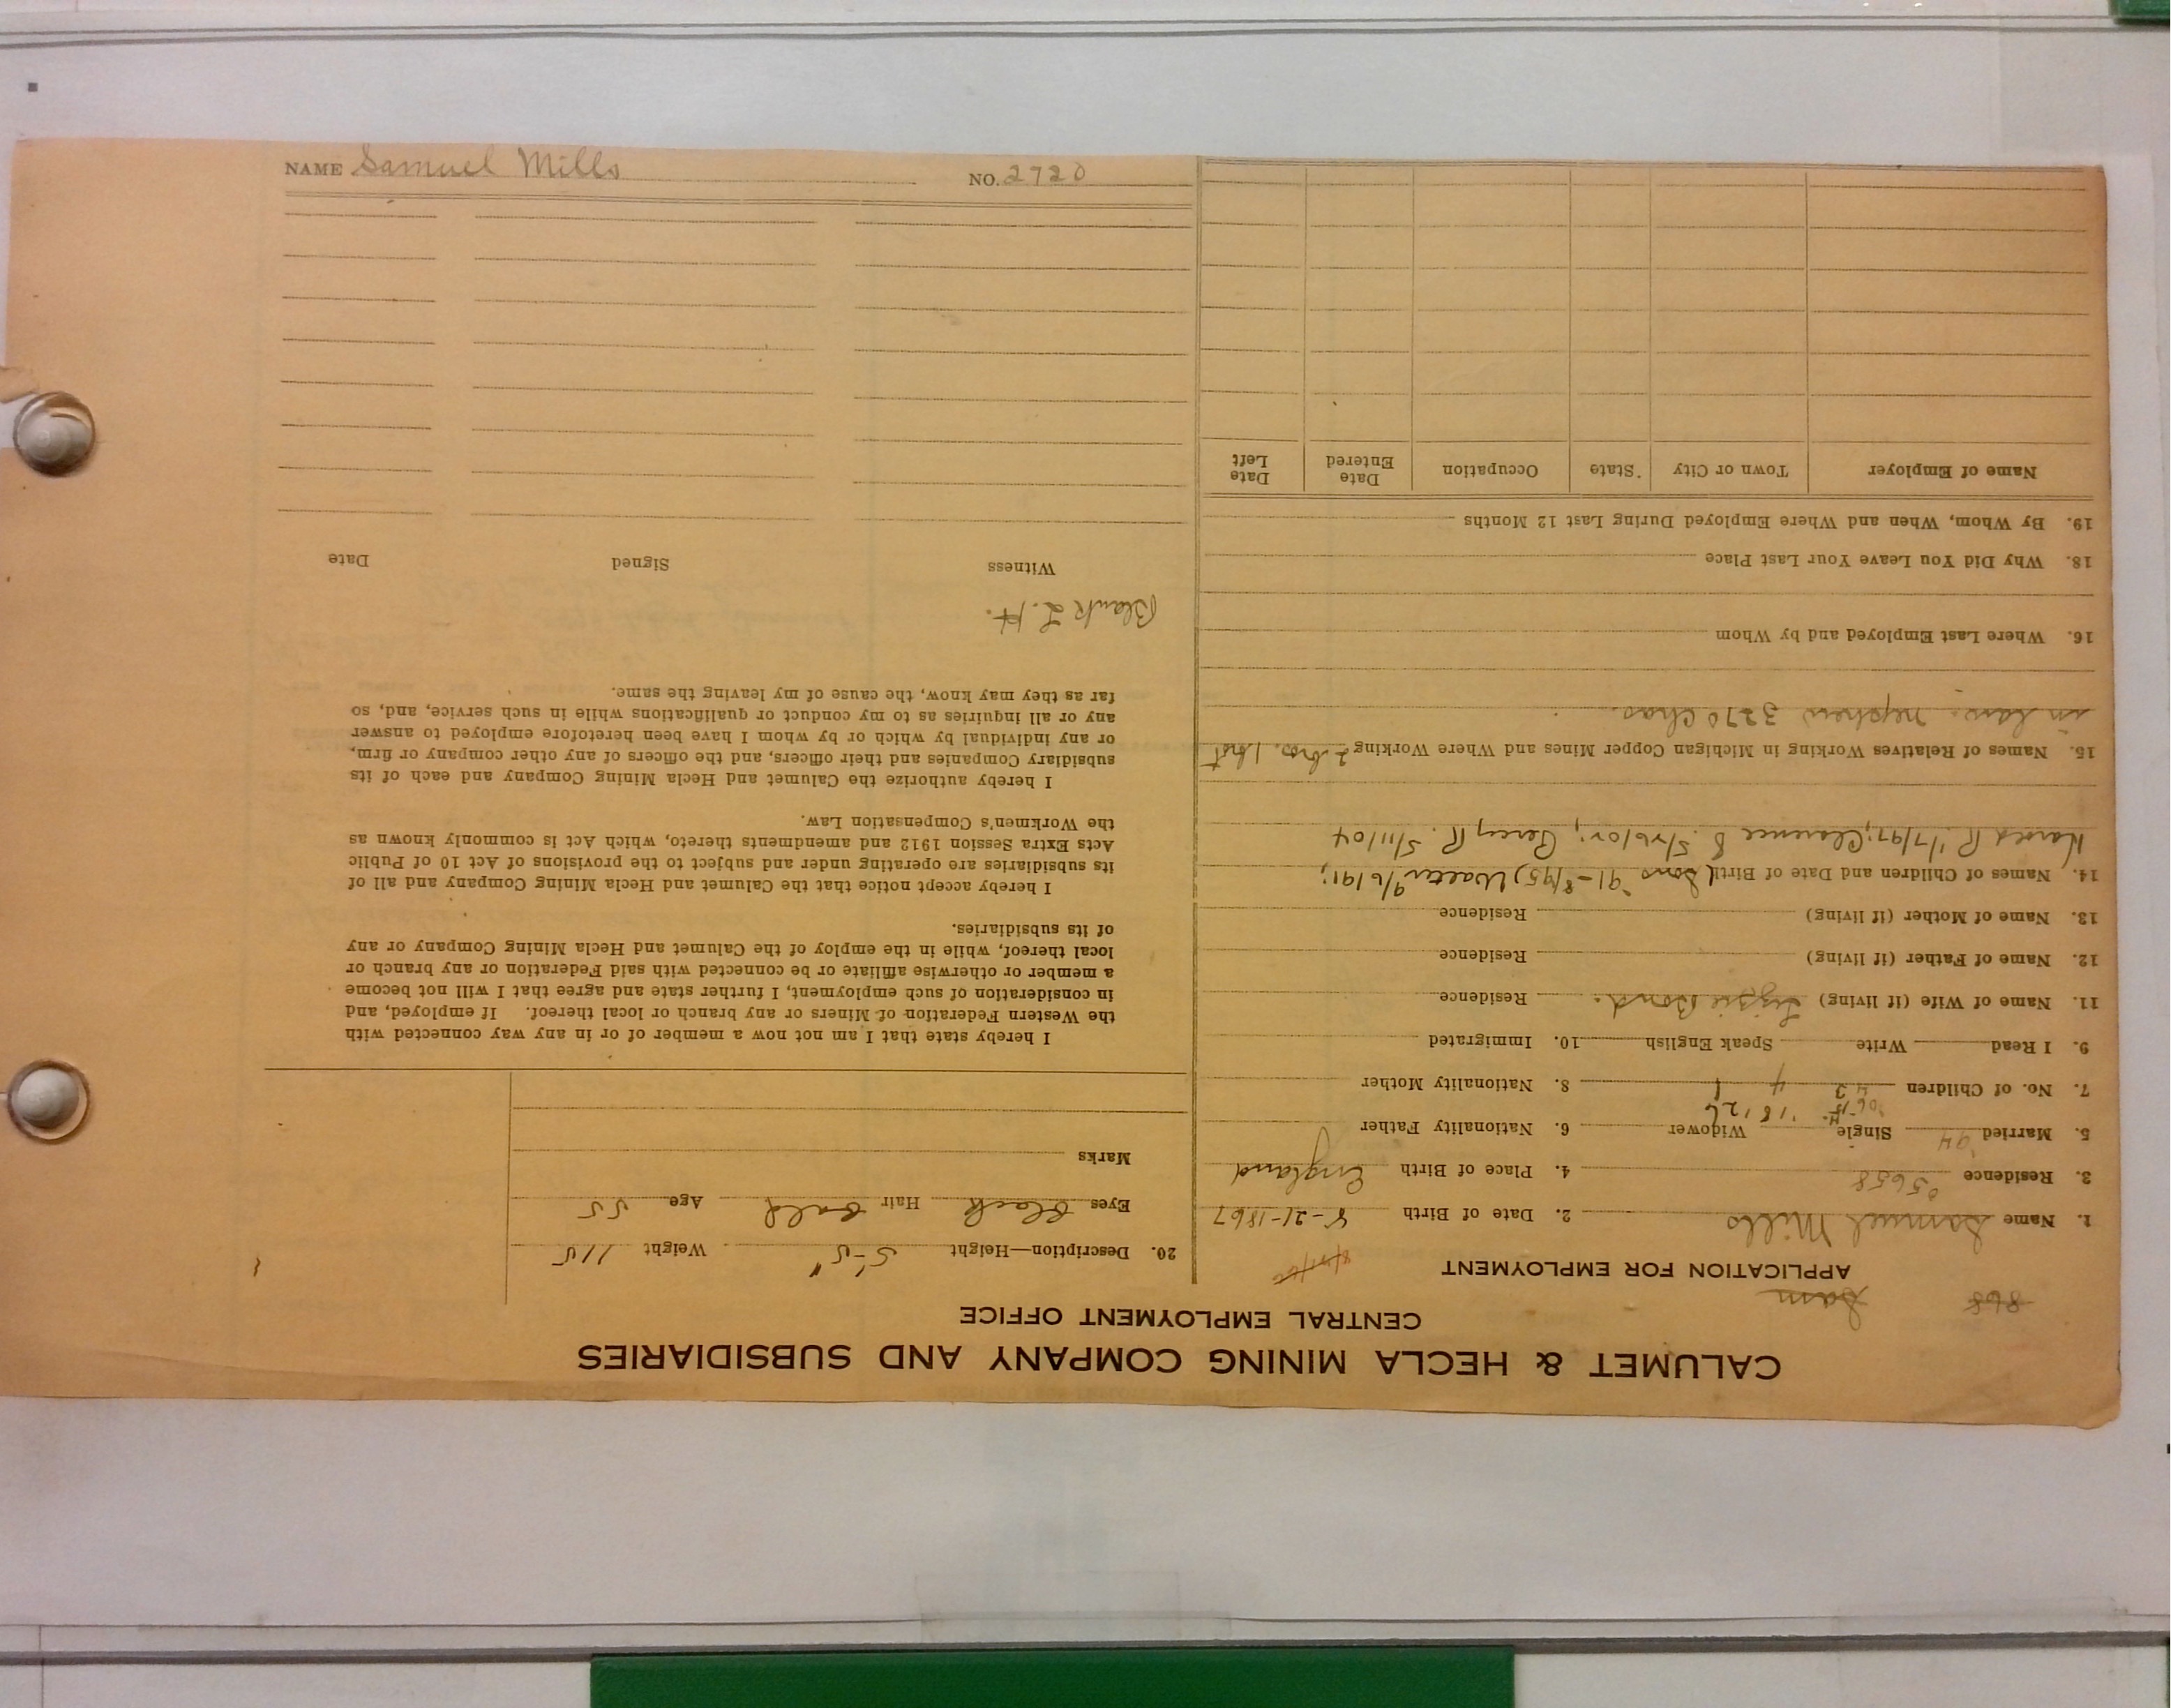 CALUMET & HECLA MINING COMPANY AND SUBSIDIARIES
CENTRAL EMPLOYMENT OFFICE
868 Sam
APPLICATION FOR EMPLOYMENT
1. Name Samuel Mills 2. Date of Birth 8-21-1867
3. Residence 5658 4. Place of Birth England
5. Married '94 Single Widower 6. Nationality Father
'06-13 '18 '26
7. No. of Children 3 4 1 8. Nationality Mother
9. I Read Write Speak English 10. Immigrated
11. Name of Wife (if living) Lizzie Bond. Residence
12. Name of Father (if living) Residence
13. Name of Mother (if living) Residence
14. Names of Children and Date of Birth Walter 9/6/91;
Harold R 11/7/97; Clarence 5/26/02; Percy R. 5/11/04
15. Names of Relatives Working in Michigan Copper Mines and Where Working 2 bros. 1 brot
in law. nephew 3270 Chas.
16. Where Last Employed and by Whom
18. Why Did You Leave Your Last Place
19. By Whom, When and Where Employed During Last 12 Months
Name of Employer Town or City State Occupation Date Entered Date Left
20. Description—Height 5'-5" Weight 115
Eyes Black Hair Bald Age 55
Marks
I hereby state that I am not now a member of or in any way connected with
the Western Federation of Miners or any branch or local thereof. If employed, and
in consideration of such employment, I further state and agree that I will not become
a member or otherwise affiliate or be connected with said Federation or any branch or
local thereof, while in the employ of the Calumet and Hecla Mining Company or any
of its subsidiaries.
I hereby accept notice that the Calumet and Hecla Mining Company and all of
its subsidiaries are operating under and subject to the provisions of Act 10 of Public
Acts Extra Session 1912 and amendments thereto, which Act is commonly known as
the Workmen's Compensation Law.
I hereby authorize the Calumet and Hecla Mining Company and each of its
subsidiary Companies and their officers, and the officers of any other company or firm,
or any individual by which or by whom I have been heretofore employed to answer
any or all inquiries as to my conduct or qualifications while in such service, and, so
far as they may know, the cause of my leaving the same.
Blank L. H.
Witness Signed Date
NAME Samuel Mills NO. 2720